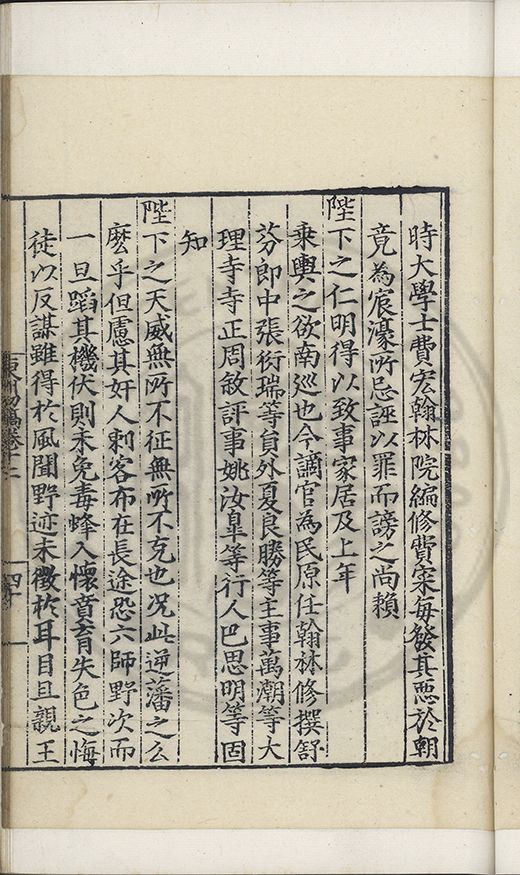 時大學士費宏翰林院編修費寀每發其惡於朝
竟為宸濠所忌誣以罪而謗之尚賴
陛下之仁明得以致事家居及上年
乘輿之欲南巡也今謫官為民原任翰林修撰舒
芬郎中張衍瑞等員外夏良勝等主事萬潮等大
理寺寺正周敘評事姚汝皐等行人巴思明等固
知
陛下之天威無所不征無所不克也况此逆藩之么
麽乎但慮其奸人刺客布在長途恐六師野次而
一旦蹈其機伏則未免毒蜂入懷賁育失色之悔
徒以反謀雖得於風聞野迹未徵於耳目且親王